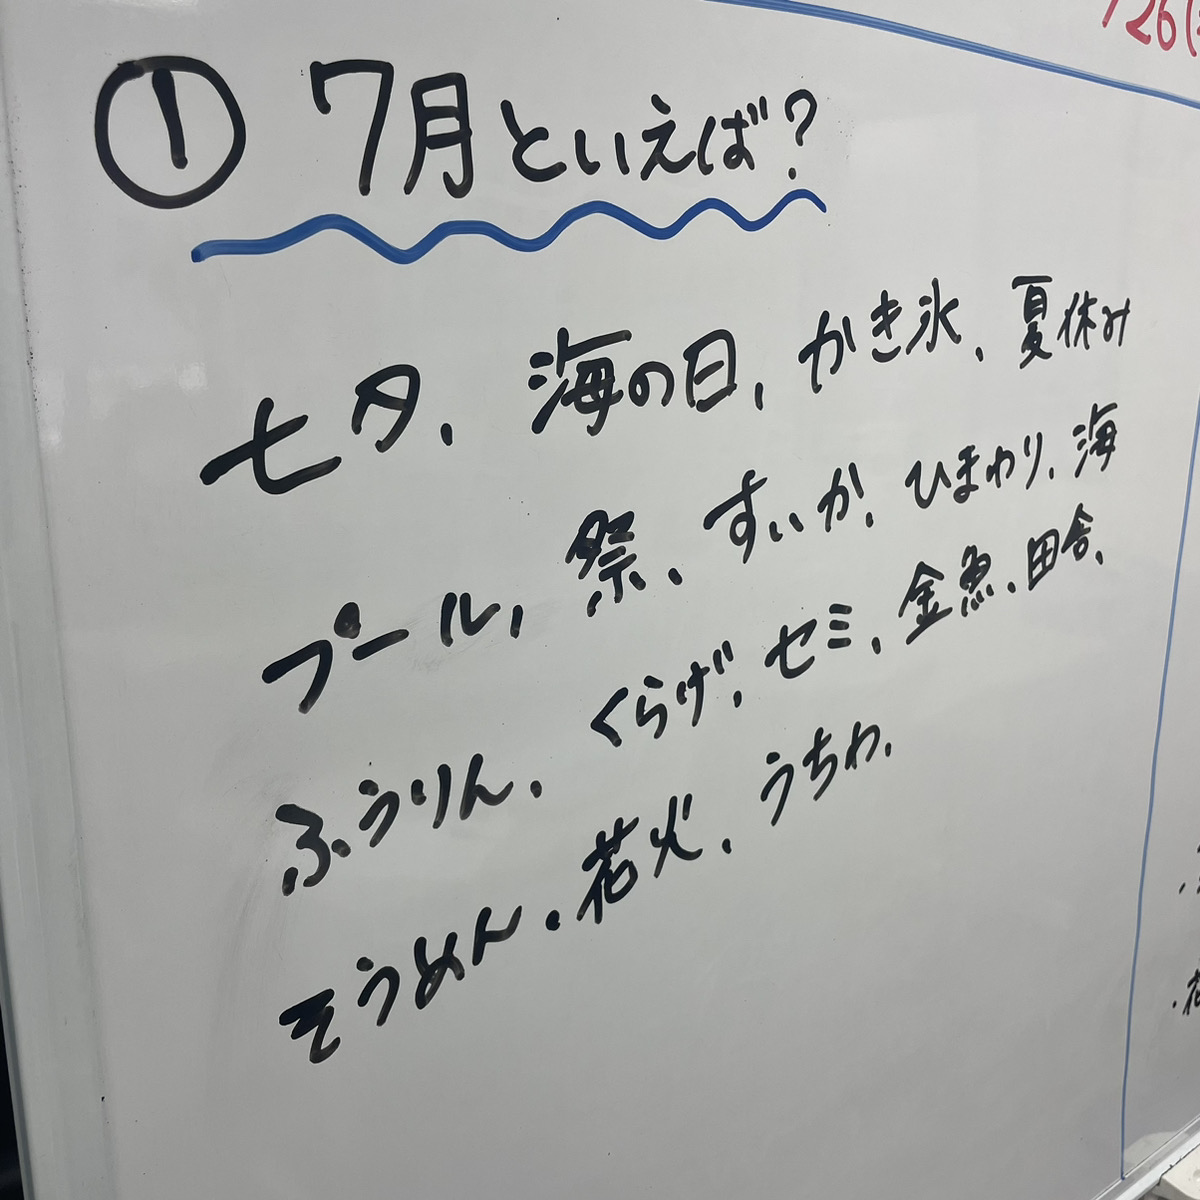 ① 7月といえば?
七夕、海の日、かき氷、夏休み
プール、祭、すいか、ひまわり、海
ふうりん、くらげ、セミ、金魚、田舎、
そうめん、花火、うちわ、
26(